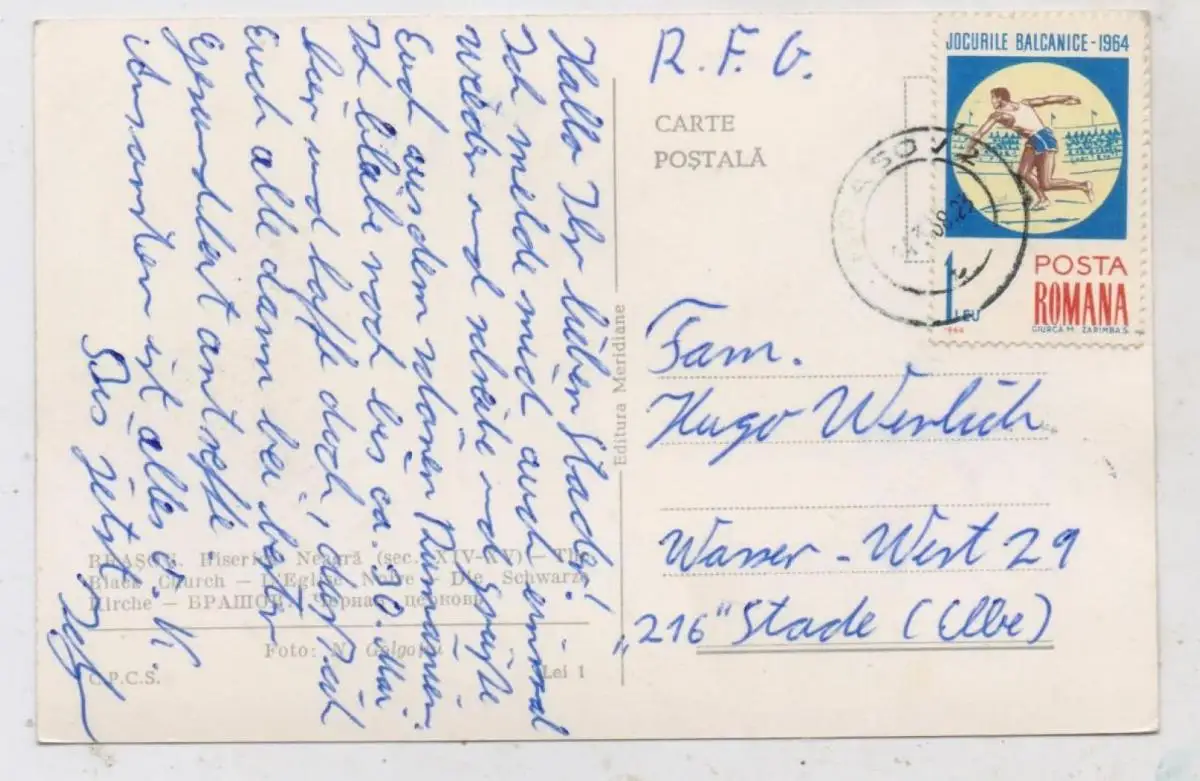 Hallo Ihr lieben Stader!
Ich melde mich auch einmal
wieder und schreibe und grüße
Euch aus dem schönen Rumänien.
Ich bleibe noch bis ca. 30. Mai
hier und hoffe doch, daß ich
Euch alle dann bei bester
Gesundheit antreffe.
Ansonsten ist alles o. K.
Bis jetzt
R. F. G.
CARTE
POȘTALĂ
JOCURILE BALCANICE - 1964
1 LEU
1964
POSTA
ROMANA
GIURCA M. ZARIMBA S.
BRASOV
Fam.
Hugo Werlich
Wasser - West 29
"216" Stade (Elbe)
Editura Meridiane
BRAȘOV. Biserica Neagră (sec. XIV-XV) — The
Black Church — L'Eglise Noire — Die Schwarze
Kirche — БРАШОВ. Черная церковь
Foto: N.
C.P.C.S.
Lei 1